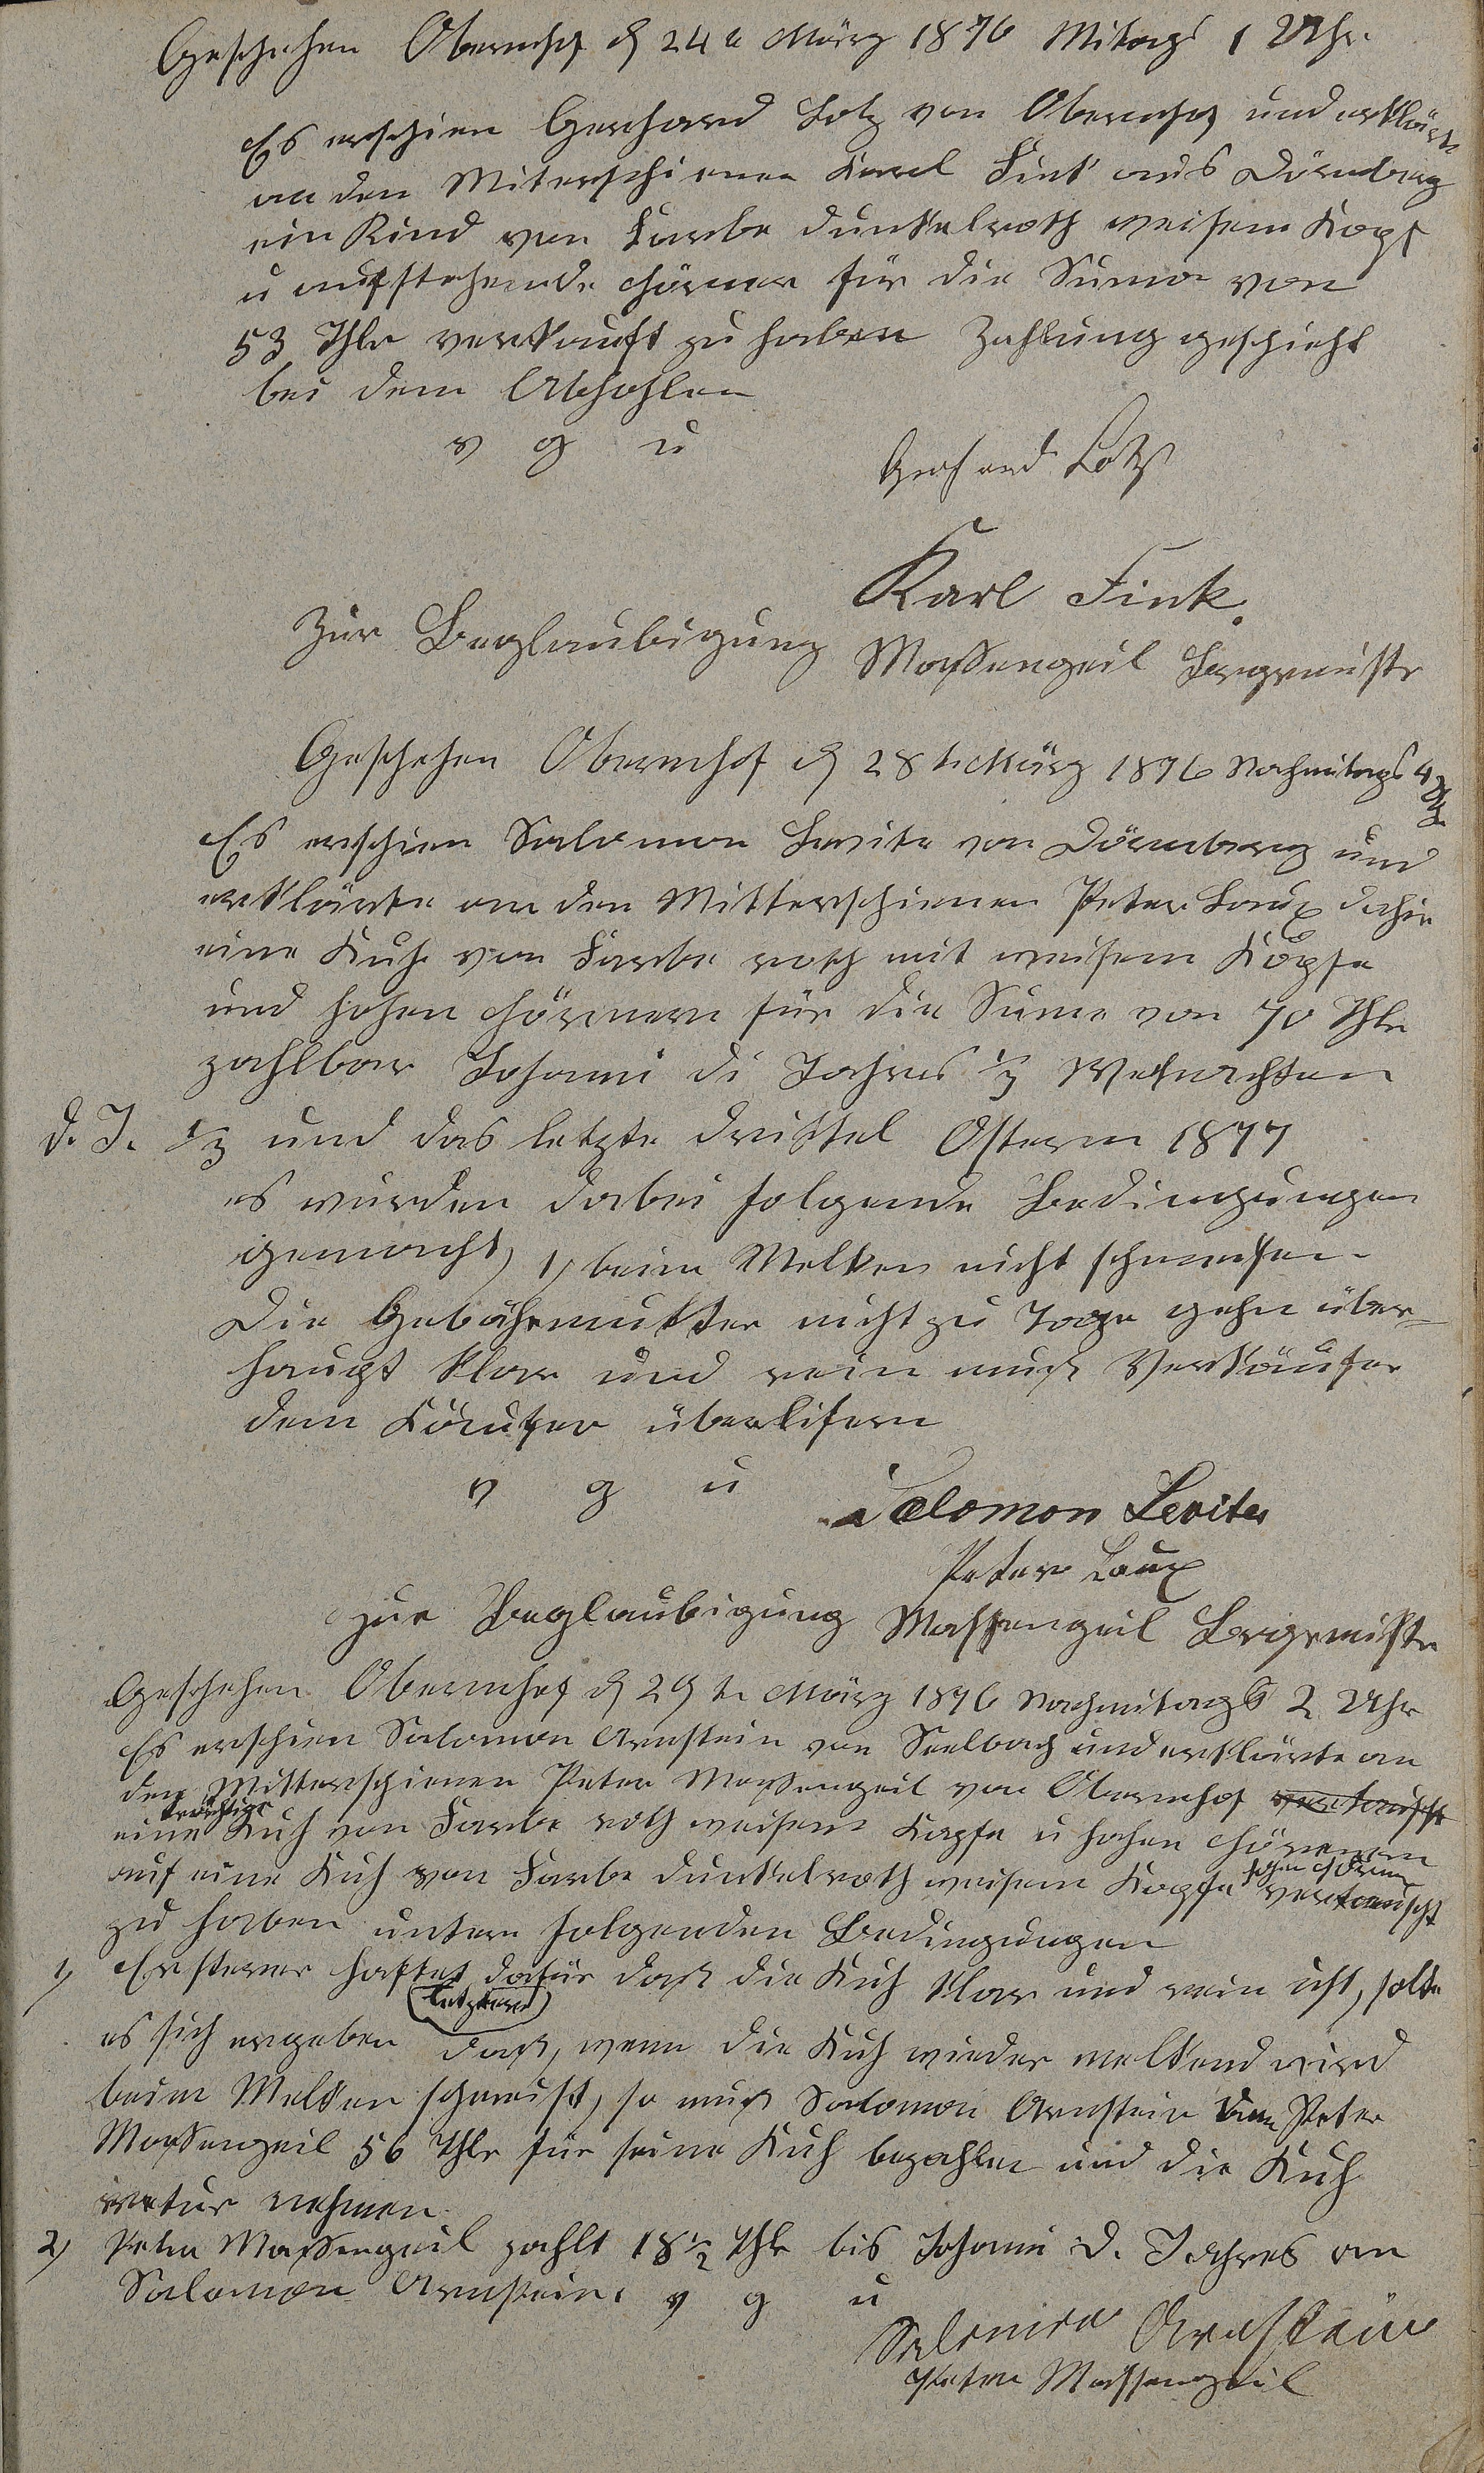 Geschehen Obernhof d 24t März 1876 Mitags 1 Uhr.
Es erschien Gerhard Lotz von Obernhof und erklärte
an den Miterschienen Karl Fink aus Dörnberg
ein Rind von Farbe dunkelroth weisem Kopf
u aufstehende Hörner für die Suma von
53 Thlr verkauft zu haben Zahlung geschieht
bei dem Abhohlen
v g u
Gerhard Lotz
Karl Fink.
Zur Beglaubigung Massengeil Bergrmeistr
Geschehen Obernhof d 28t März 1876 Nachmitags 4 Uhr
Es erschien Salomon Levita von Dörnberg und
erklärte an den Mitterschienen Peter Laux dahie
eine Kuh von Farbe roth mit weisem Kopfe
und hohen Hörnern für die Sume von 70 Thlr
zahlbar Johanni di Jahres 1/3 Weihnachten
d. J. 1/3 und das letzte drittel Ostern 1877
es wurden dabei folgende Bedingungen
gemacht, 1, beim Melken nicht schmeisen.
Die Gebährmutter nicht zu Tage gehn über=
haupt klar und rein muß Verkäufer
dem Käufer überlifern
v g u
Salomon Levita
Peter Laux
zur Beglaubigung Massengeil Bergrmistr
Geschehen Obernhof d 29t März 1876 Nachmitags 2 Uhr
Es erschien Salomon Arnstein von Seelbach und erklärte an
den Mitterschienen Peter Massengeil von Obernhof vertauscht
trächtige
eine Kuh von Farbe roth weisem Kopfe u hohen Hörnern
auf eine Kuh von Farbe dunkelroth weisem Kopfe hohen Hörner vertauscht
zu haben untern folgenden Bedingungen
1, Ersterer haftet dafür daß die Kuh klar und rein ist, solte
es sich ergeben (letztere) daß, wenn die Kuh wieder melkend wird
beim Melken schmeist, so muß Salomon Arnstein dem Peter
Massengeil 56 Thlr für seine Kuh bezahlen und die Kuh
retur nehmen.
2, Peter Massengeil zahlt 18 1/2 Thlr bis Johanni d. Jahres an
Salomon Arnstein. v g u
Salomon Arnstein
Peter Massengeil